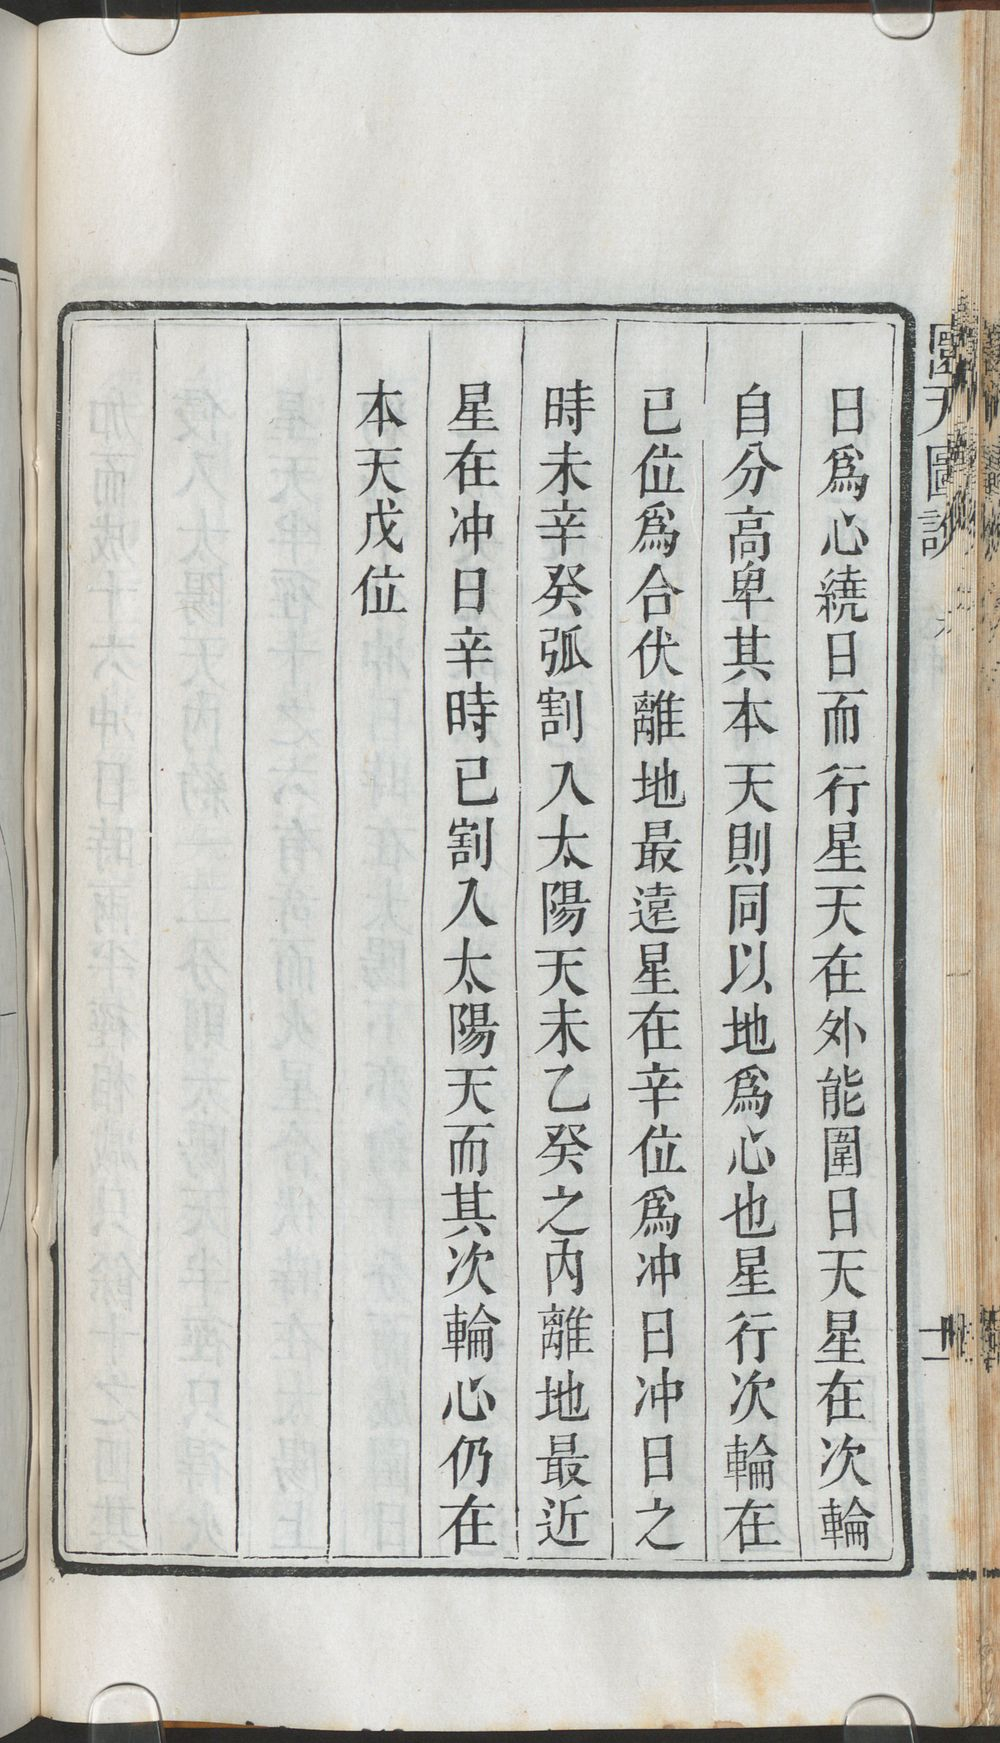 日爲心繞日而行星天在外能圍日天星在次輪
自分高卑其本天則同以地爲心也星行次輪在
已位爲合伏離地最遠星在辛位爲冲日冲日之
時未辛癸弧割入太陽天未乙癸之內離地最近
星在冲日辛時已割入太陽天而其次輪心仍在
本天戊位
圜天圖說